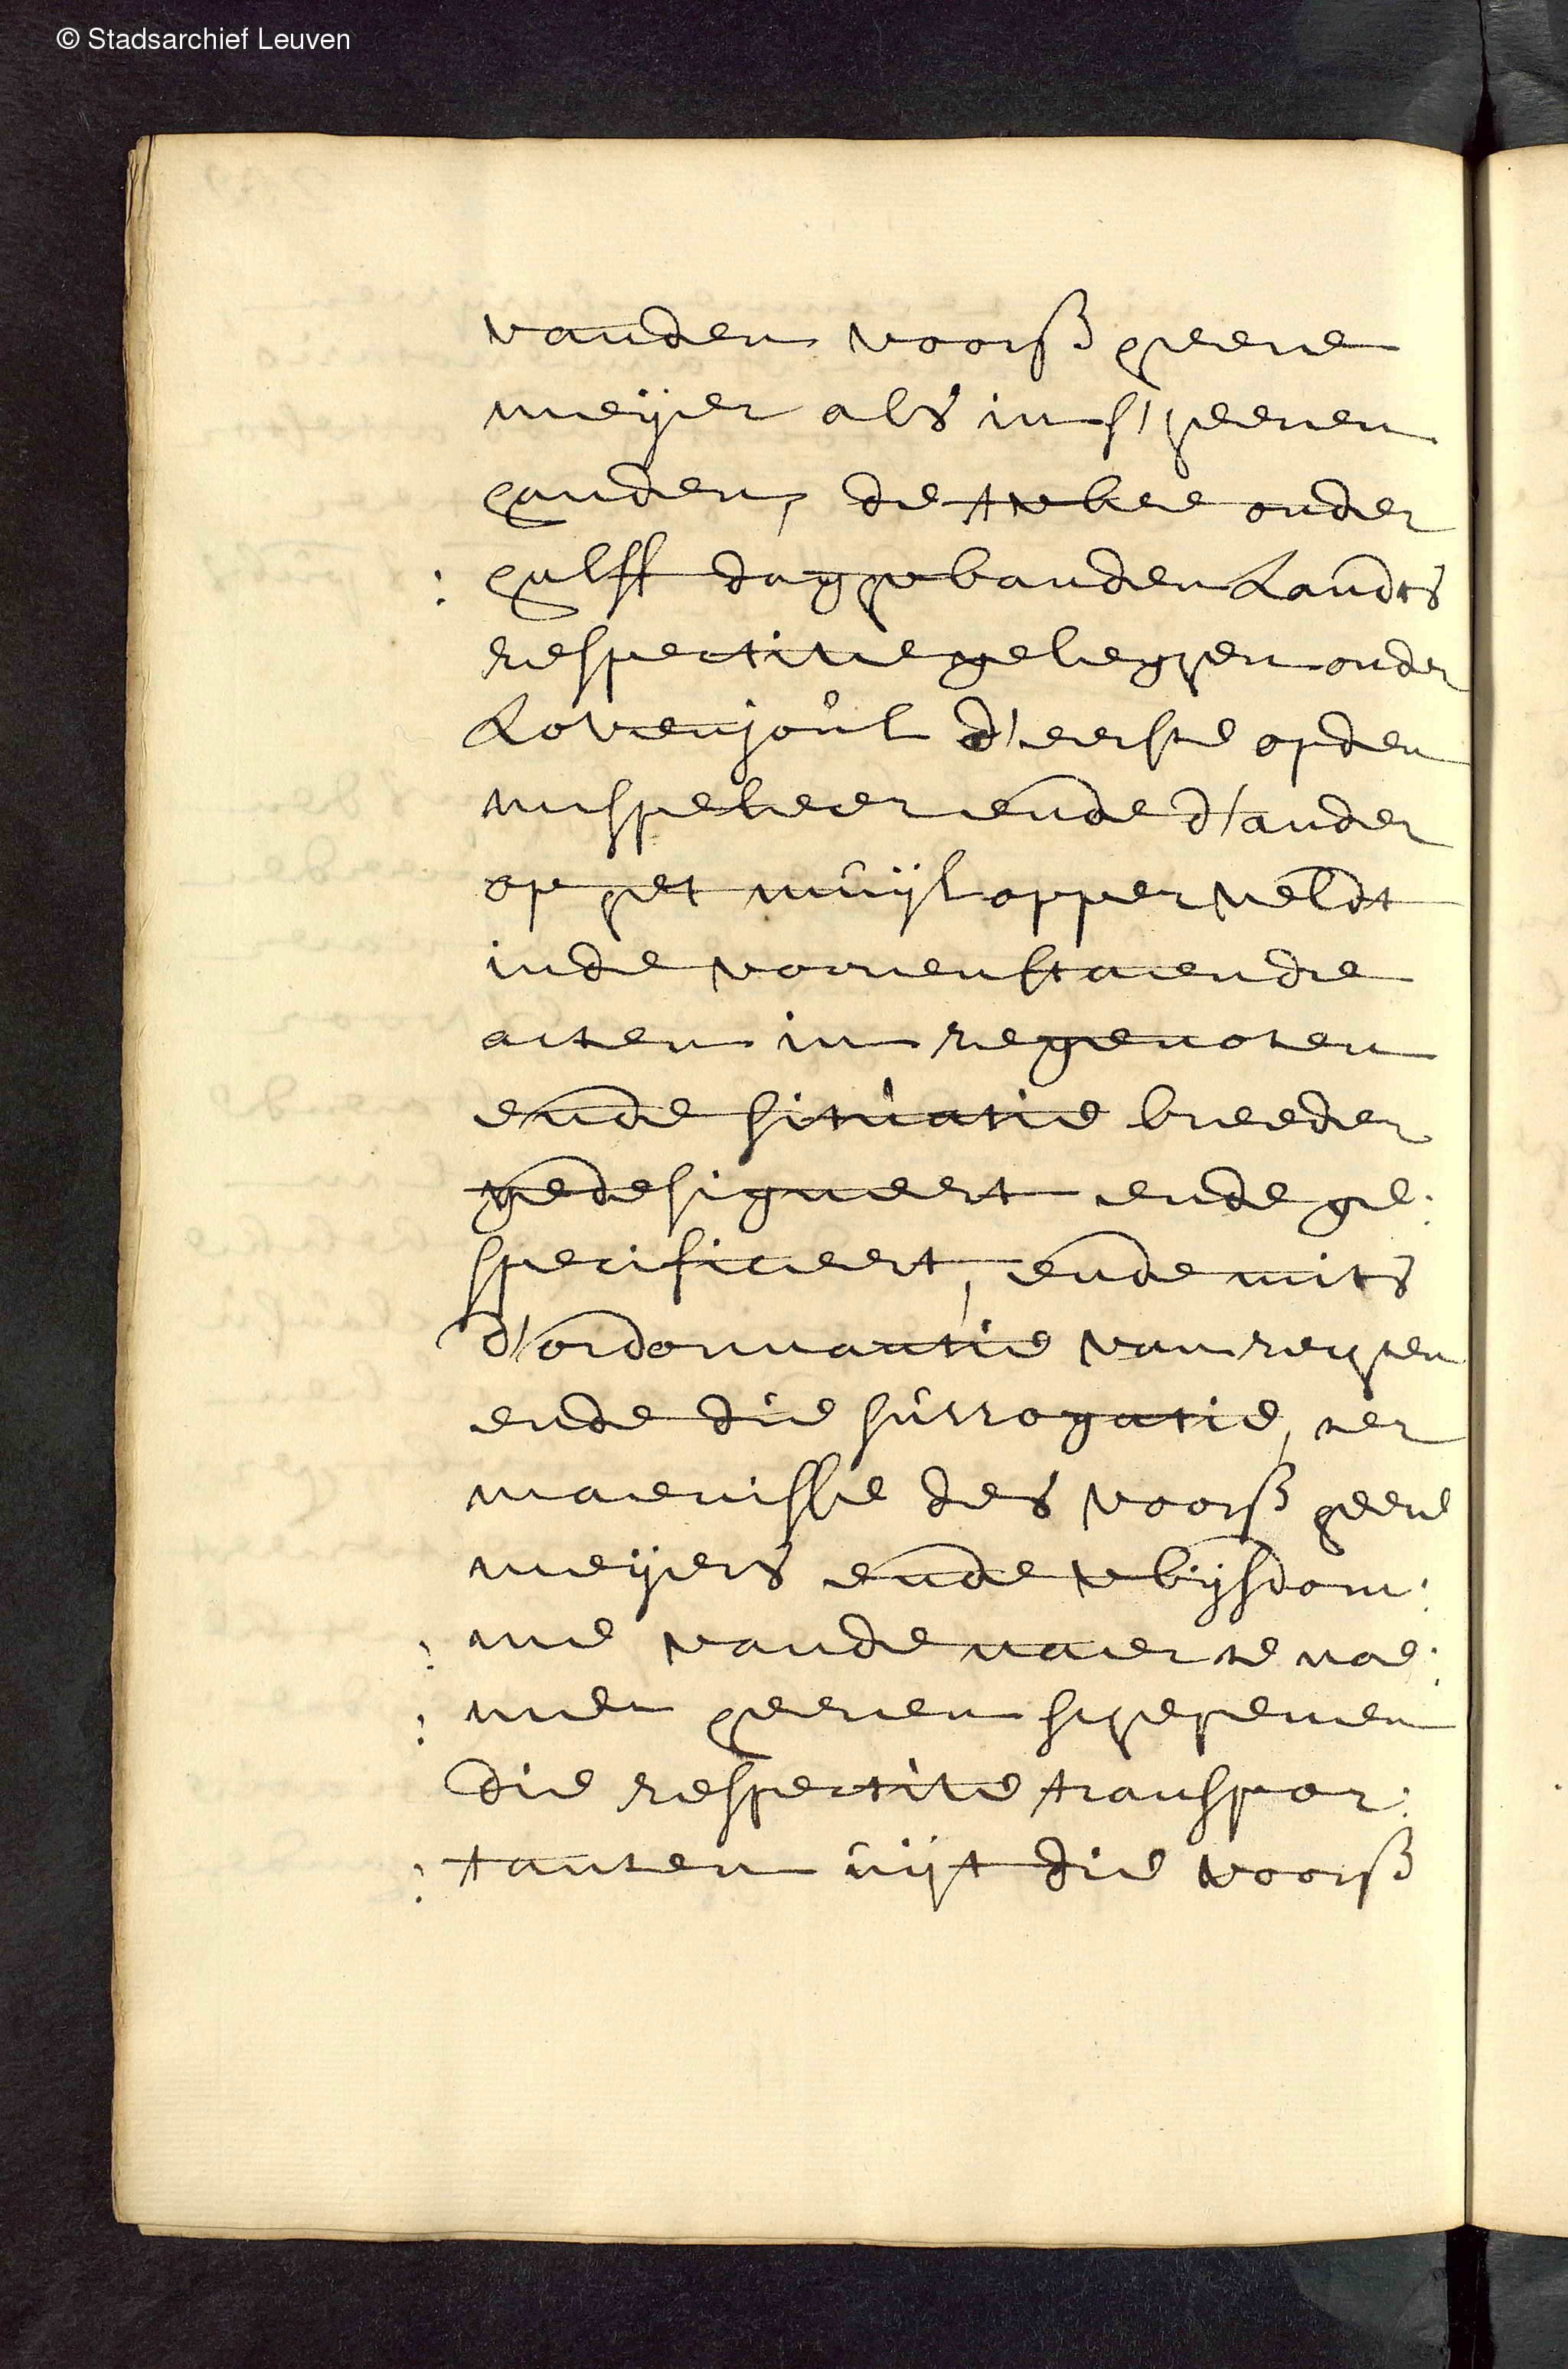 © Stadsarchief Leuven
vanden voorß heere
meijer als in s'heeren
handen, de twee onder
: halff daghwanden Landts
respective geleghen onder
Lovenjoul d'eerste opden
mispeleer ende d'ander
op het muijlopper veldt
inde voorenstaende
acten in regenoten
ende situatie breeder
gedesigneert ende ge:
specificeert, ende mits
d'ordonnantie van rechten
ende die surrogatie, ter
maenisse des voorß heere
meijers ende wijsdom:
: me vande naer te noe:
: men heeren schepenen
die respective transpor:
: tanten uijt die voorß